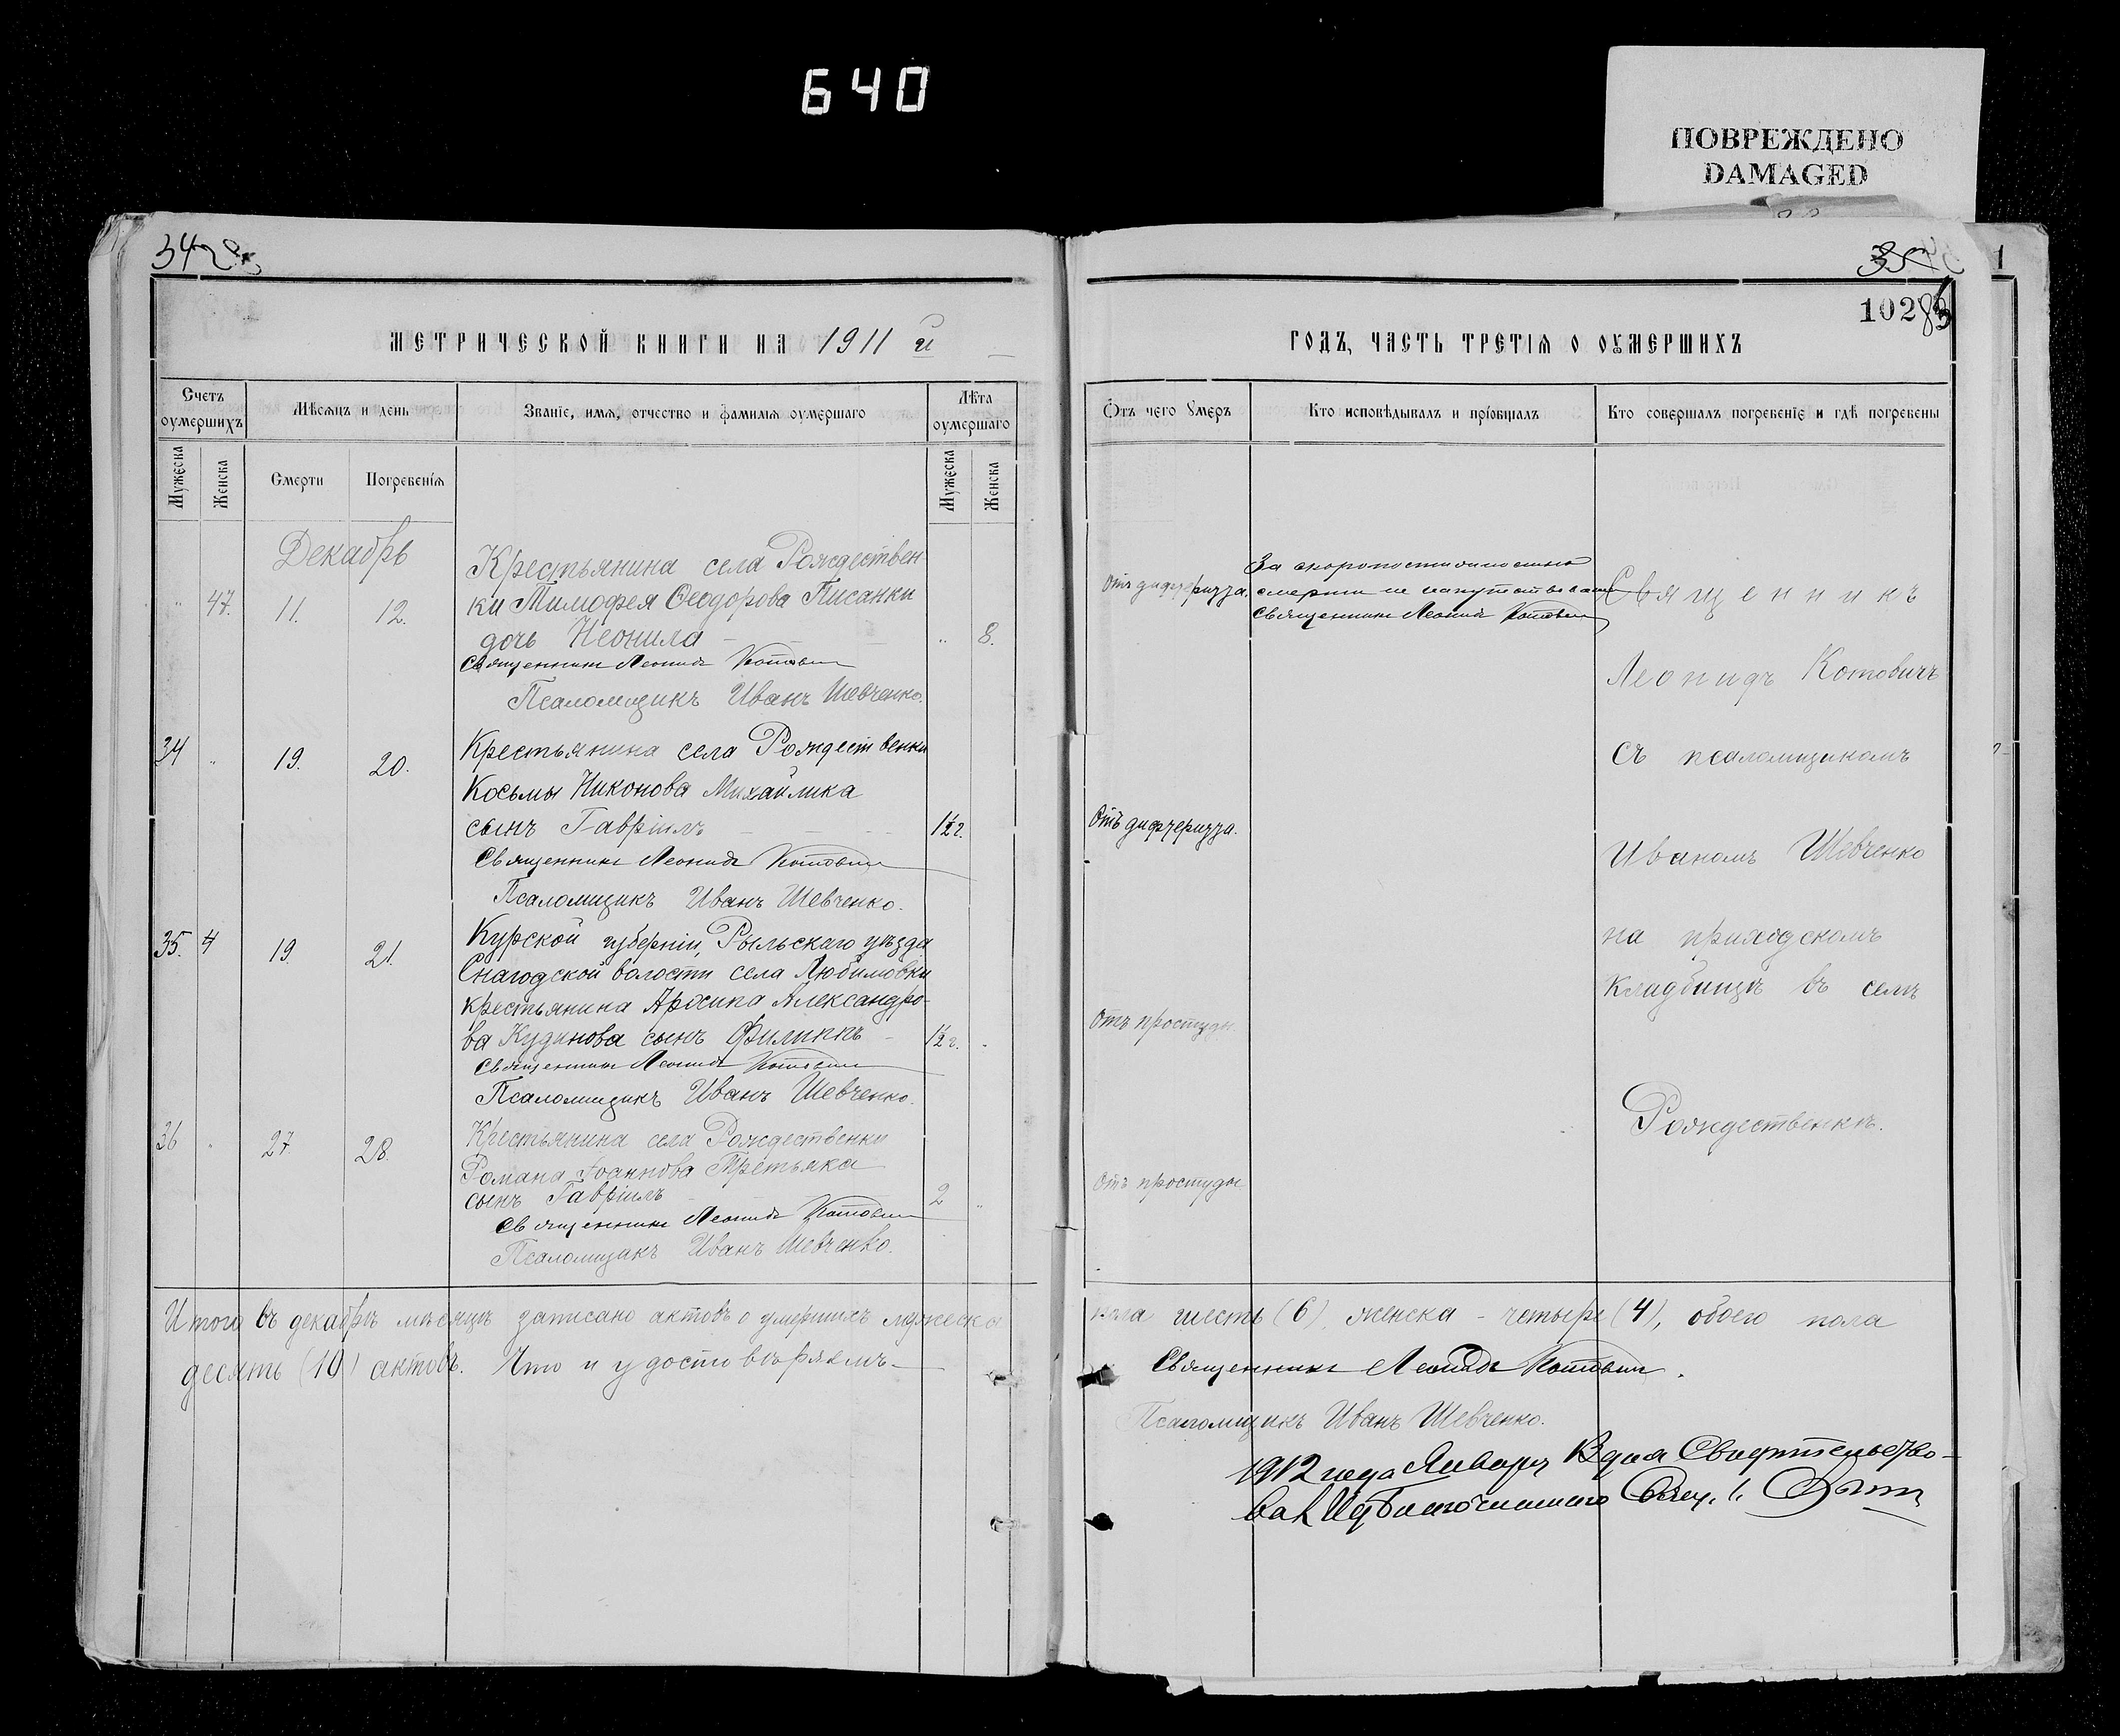 640
ПОВРЕЖДЕНО
DAMAGED
342
35
1
102
МЕТРИЧЕСКОЙ КНИГИ НА 1911 й
ГОДЪ, ЧАСТЬ ТРЕТІЯ О ОУМЕРШИХЪ
Счетъ оумершихъ
Мѣсяцъ и день
Званіе, имя, отчество и фамилія оумершаго
Лѣта оумершаго
Отъ чего умеръ
Кто исповѣдывалъ и пріобщалъ
Кто совершалъ погребеніе и гдѣ погребены
Мужеска
Женска
Смерти
Погребенія
Мужеска
Женска
Декабрь
47. 11. 12.
Крестьянина села Рождествен
ки Тимофея Ѳеодорова Писанки
дочь Неонила 8.
Священникъ Леонидъ Котович
Псаломщикъ Иванъ Шевченко.
34 19. 20.
Крестьянина села Рождественки
Косьмы Никонова Михайлика
сынъ Гавріилъ 1½ г.
Священникъ Леонидъ Котович
Псаломщикъ Иванъ Шевченко.
35. 4 19. 21.
Курской губерніи, Рыльскаго уѣзда
Снагодской волости села Любимовки
крестьянина Архипа Александро-
ва Кудинова сынъ Филиппъ 1½ г.
Священникъ Леонидъ Котович
Псаломщикъ Иванъ Шевченко.
36 27. 28.
Крестьянина села Рождественки
Романа Іоаннова Третьяка
сынъ Гавріилъ 2
Священникъ Леонидъ Котович
Псаломщикъ Иванъ Шевченко.
Отъ дифтеризза.
За скоропостижностью
смерти не напутствована
Священникъ Леонидъ Котович
Отъ дифтеризза.
Отъ простуды.
Отъ простуды
Священникъ
Леонидъ Котовичъ
съ псаломщикомъ
Иваномъ Шевченко
на приходскомъ
кладбищѣ въ селѣ
Рождественкѣ.
Итого въ декабрѣ мѣсяцѣ записано актовъ о умершихъ мужеска
пола шесть (6), женска - четыре (4), обоего пола
десять (10) актовъ. Что и удостовѣряемъ
Священникъ Леонидъ Котович.
Псаломщикъ Иванъ Шевченко.
1912 года Января дня Свидѣтельство-
вал